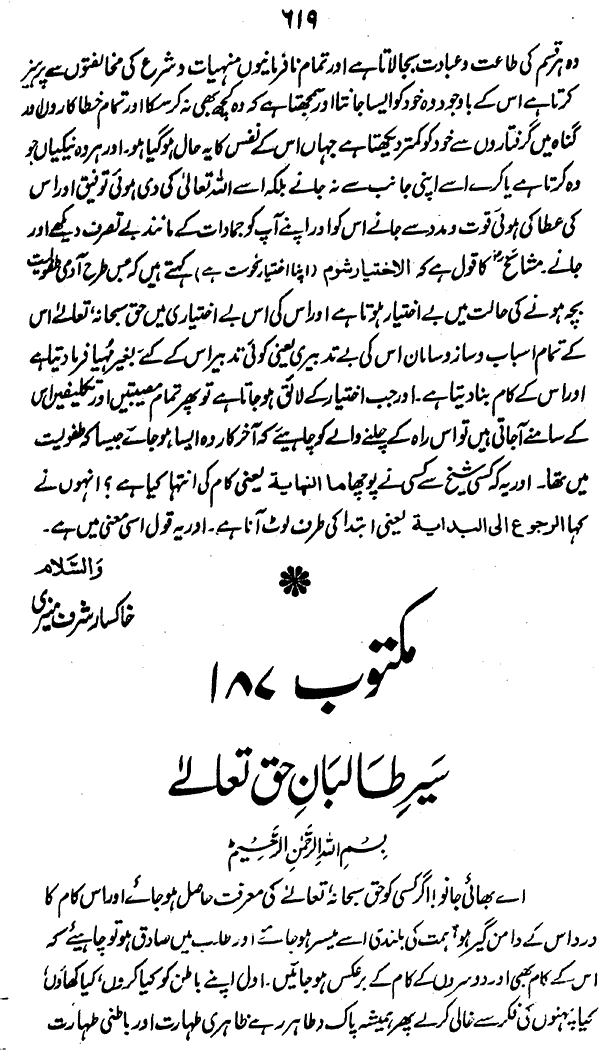 ۶۱۹
وہ ہر قسم کی طاعت و عبادت بجا لاتا ہے اور تمام نافرمانیوں منہیات و شرع کی مخالفتوں سے پرہیز
کرتا ہے اس کے باوجود وہ خود کو ایسا جانتا اور سمجھتا ہے کہ وہ کچھ بھی نہ کرسکا اور تمام خطا کاروں اور
گناہ میں گرفتاروں سے خود کو کمتر دیکھتا ہے جہاں اس کے نفس کا یہ حال ہوگیا ہو۔ اور ہر دہ نیکیاں جو
وہ کرتا ہے یا کرے اسے اپنی جانب سے نہ جانے بلکہ اسے اللہ تعالیٰ کی دی ہوئی توفیق اور اس
کی عطا کی ہوئی قوت و مدد سے جانے اس کو اور اپنے آپ کو جمادات کے مانند بے تصرف دیکھے اور
جانے۔ مشائخؒ کا قول ہے کہ الاختیار شوم (اپنا اختیار نحوست ہے) کہتے ہیں کہ جس طرح آدمی طفولیت
بچہ ہونے کی حالت میں بے اختیار ہوتا ہے اور اس کی اس بے اختیاری میں حق سبحانہ، تعالےٰ اس
کے تمام اسباب و ساز و سامان اس کی بے تدبیری یعنی کوئی تدبیر اس کے کئے بغیر مہیا فرما دیتا ہے
اور اس کے کام بنا دیتا ہے۔ اور جب اختیار کے لائق ہو جاتا ہے تو پھر تمام مصیبتیں اور تکلیفیں اس
کے سامنے آجاتی ہیں تو اس راہ کے چلنے والے کو چاہیئے کہ آخر کار وہ ایسا ہو جائے جیسا کہ طفولیت
میں تھا۔ اور یہ کہ کسی شیخ سے کسی نے پوچھا ما النہایة یعنی کام کی انتہا کیا ہے؟ انہوں نے
کہا الرجوع الی البدایة یعنی ابتدا کی طرف لوٹ آنا ہے۔ اور یہ قول اسی معنی میں ہے۔
والسّلام
خاکسار شرف منیری
مکتوب ۱۸۷
سَیرِ طالبَانِ حق تعالےٰ
بِسْمِ اللہِ الرَّحْمٰنِ الرَّحِیْمِ
اے بھائی جانو! اگر کسی کو حق سبحانہ، تعالےٰ کی معرفت حاصل ہو جائے اور اس کام کا
درد اس کے دامن گیر ہو، ہمت کی بلندی اسے میسر ہو جائے اور طلب میں صادق ہو تو چاہیئے کہ
اس کے کام بھی اور دوسروں کے کام کے برعکس ہو جائیں۔ اول اپنے باطن کو کیا کروں، کیا کھاؤں،
کیا پہنوں کی فکر سے خالی کرلے پھر ہمیشہ پاک و طاہر رہے ظاہری طہارت اور باطنی طہارت